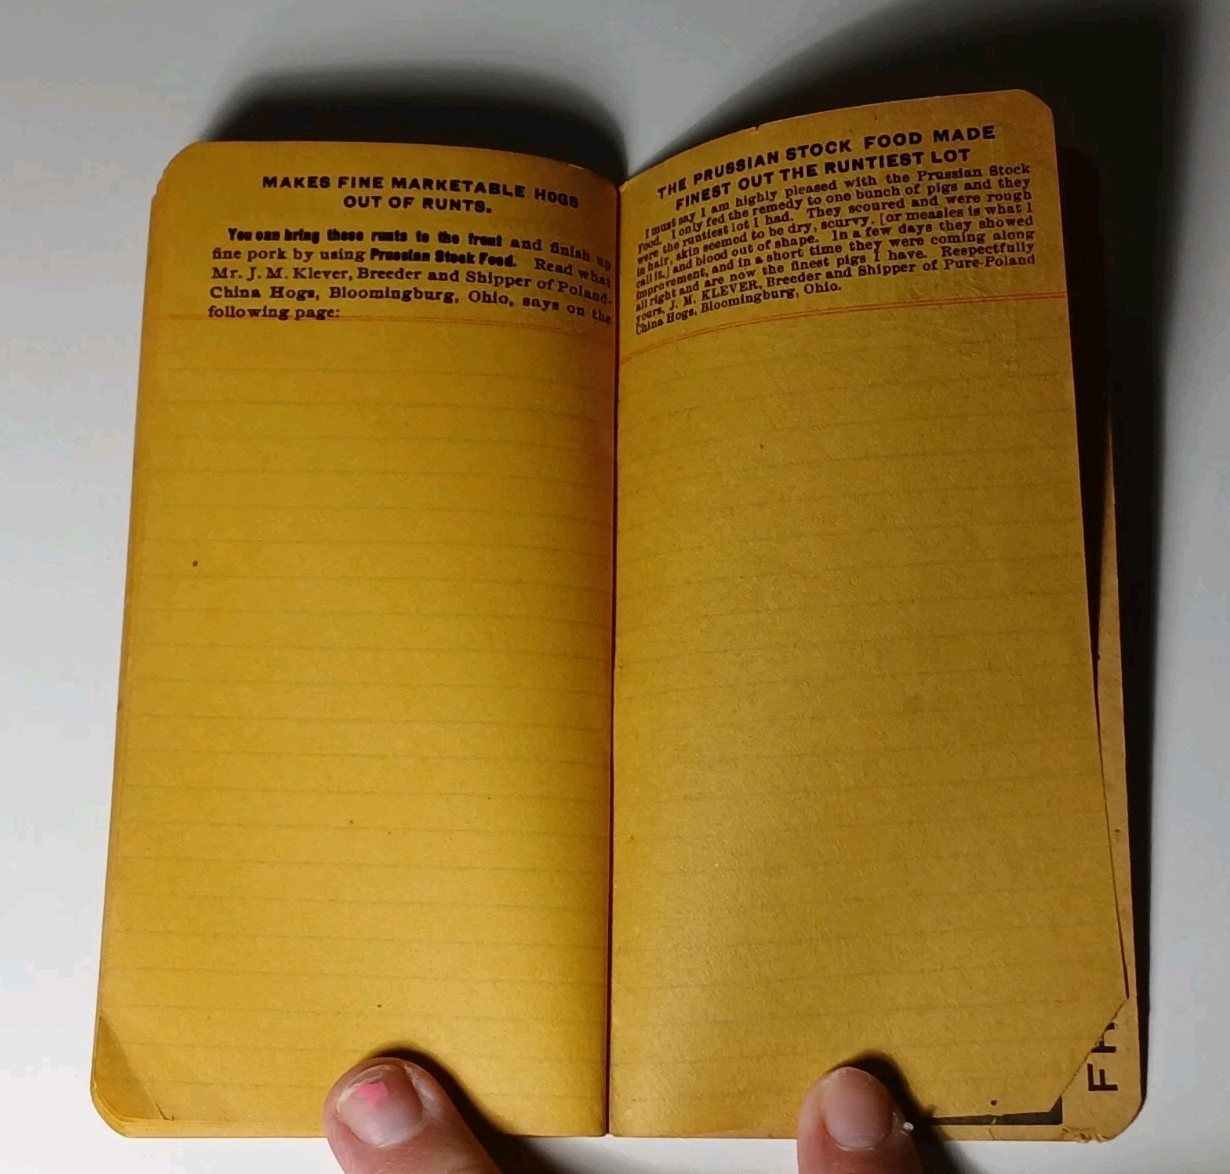 MAKES FINE MARKETABLE HOGS
OUT OF RUNTS.
You can bring these runts to the front and finish up
fine pork by using Prussian Stock Food. Read what
Mr. J. M. Klever, Breeder and Shipper of Poland-
China Hogs, Bloomingburg, Ohio, says on the
following page:
THE PRUSSIAN STOCK FOOD MADE
FINEST OUT THE RUNTIEST LOT
I must say I am highly pleased with the Prussian Stock
Food. I only fed the remedy to one bunch of pigs and they
were the runtiest lot I had. They scoured and were rough
in hair, skin seemed to be dry, scurvy, [or measles is what I
call it,] and blood out of shape. In a few days they showed
improvement, and in a short time they were coming along
all right and are now the finest pigs I have. Respectfully
yours, J. M. KLEVER, Breeder and Shipper of Pure-Poland
China Hogs, Bloomingburg, Ohio.